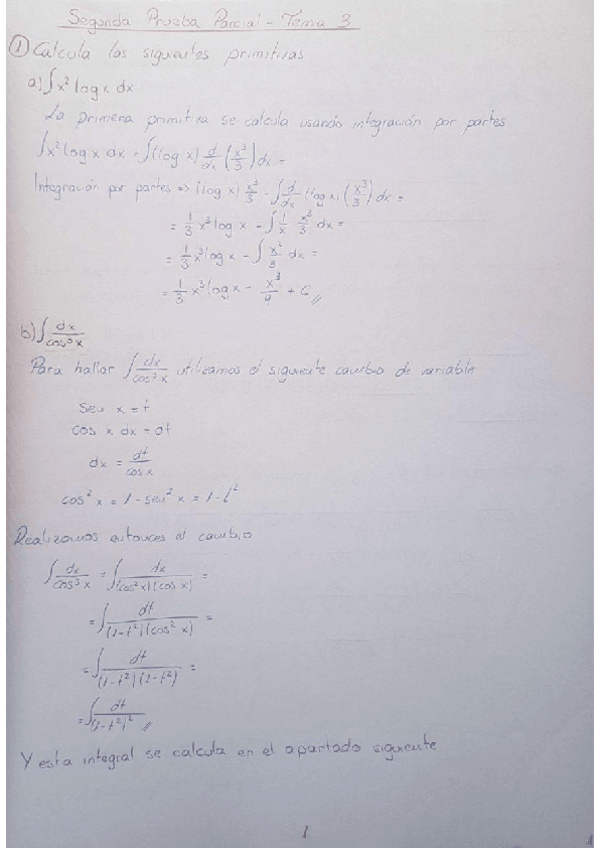 Segunda Prueba Parcial - Tema 3
① Calcula las siguientes primitivas
a) ∫ x² log x dx
La primera primitiva se calcula usando integración por partes
∫ x² log x dx = ∫ (log x) d/dx (x³/3) dx =
Integración por partes => (log x) x³/3 - ∫ d/dx (log x) (x³/3) dx =
= 1/3 x³ log x - ∫ 1/x x³/3 dx =
= 1/3 x³ log x - ∫ x²/3 dx =
= 1/3 x³ log x - x³/9 + C //
b) ∫ dx/cos³ x
Para hallar ∫ dx/cos³ x utilizamos el siguiente cambio de variable
sen x = t
cos x dx = dt
dx = dt/cos x
cos² x = 1 - sen² x = 1 - t²
Realizamos entonces el cambio
∫ dx/cos³ x = ∫ dx/(cos² x)(cos x) =
= ∫ dt/(1-t²)(cos² x) =
= ∫ dt/(1-t²)(1-t²) =
= ∫ dt/(1-t²)² //
Y esta integral se calcula en el apartado siguiente
1
1